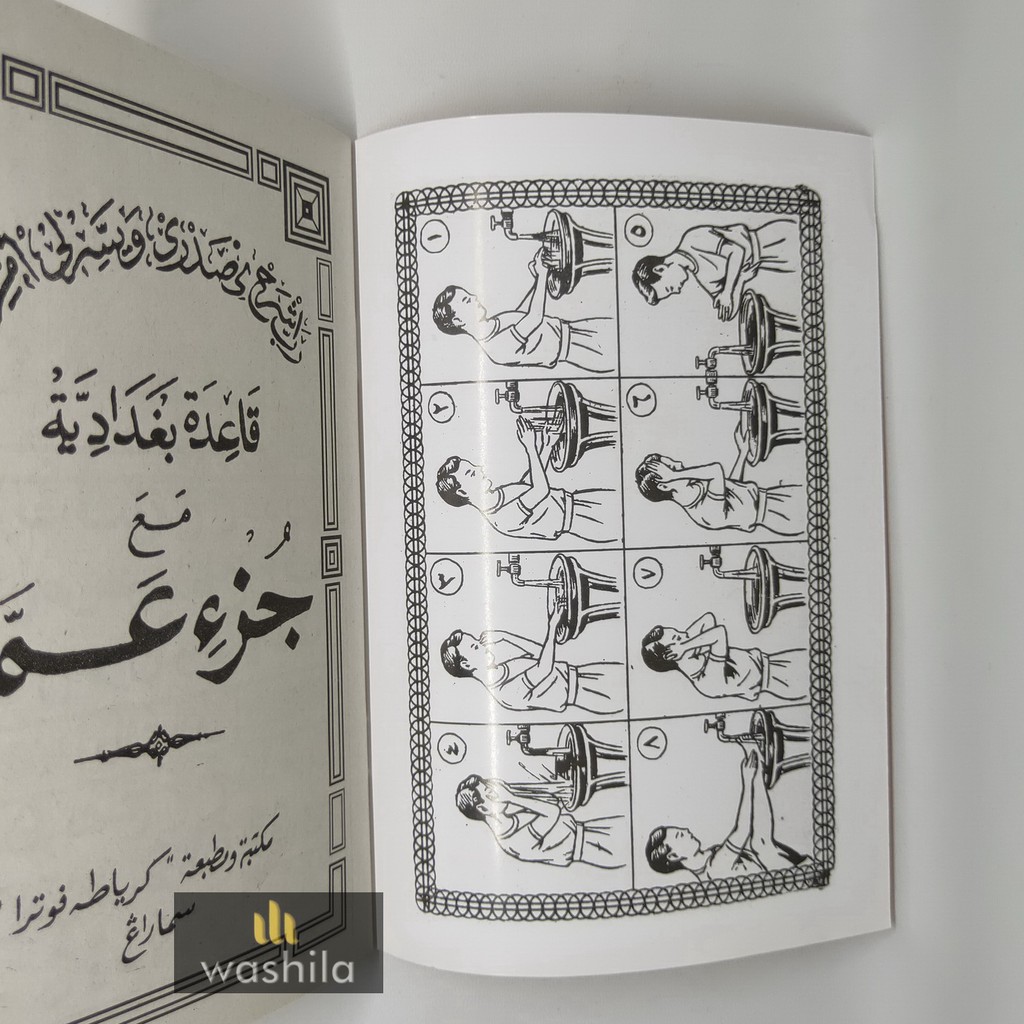 رَبِّ اشْرَحْ لِيْ صَدْرِيْ وَيَسِّرْ لِيْ
قَاعِدَة بَغْدَادِيَّةْ
مَعَ
جُزْءِ عَمَّ
مكتبة ومطبعة "كرياطه فوترا"
سماراڠ
١
٢
٣
٤
٥
٦
٧
٨
washila